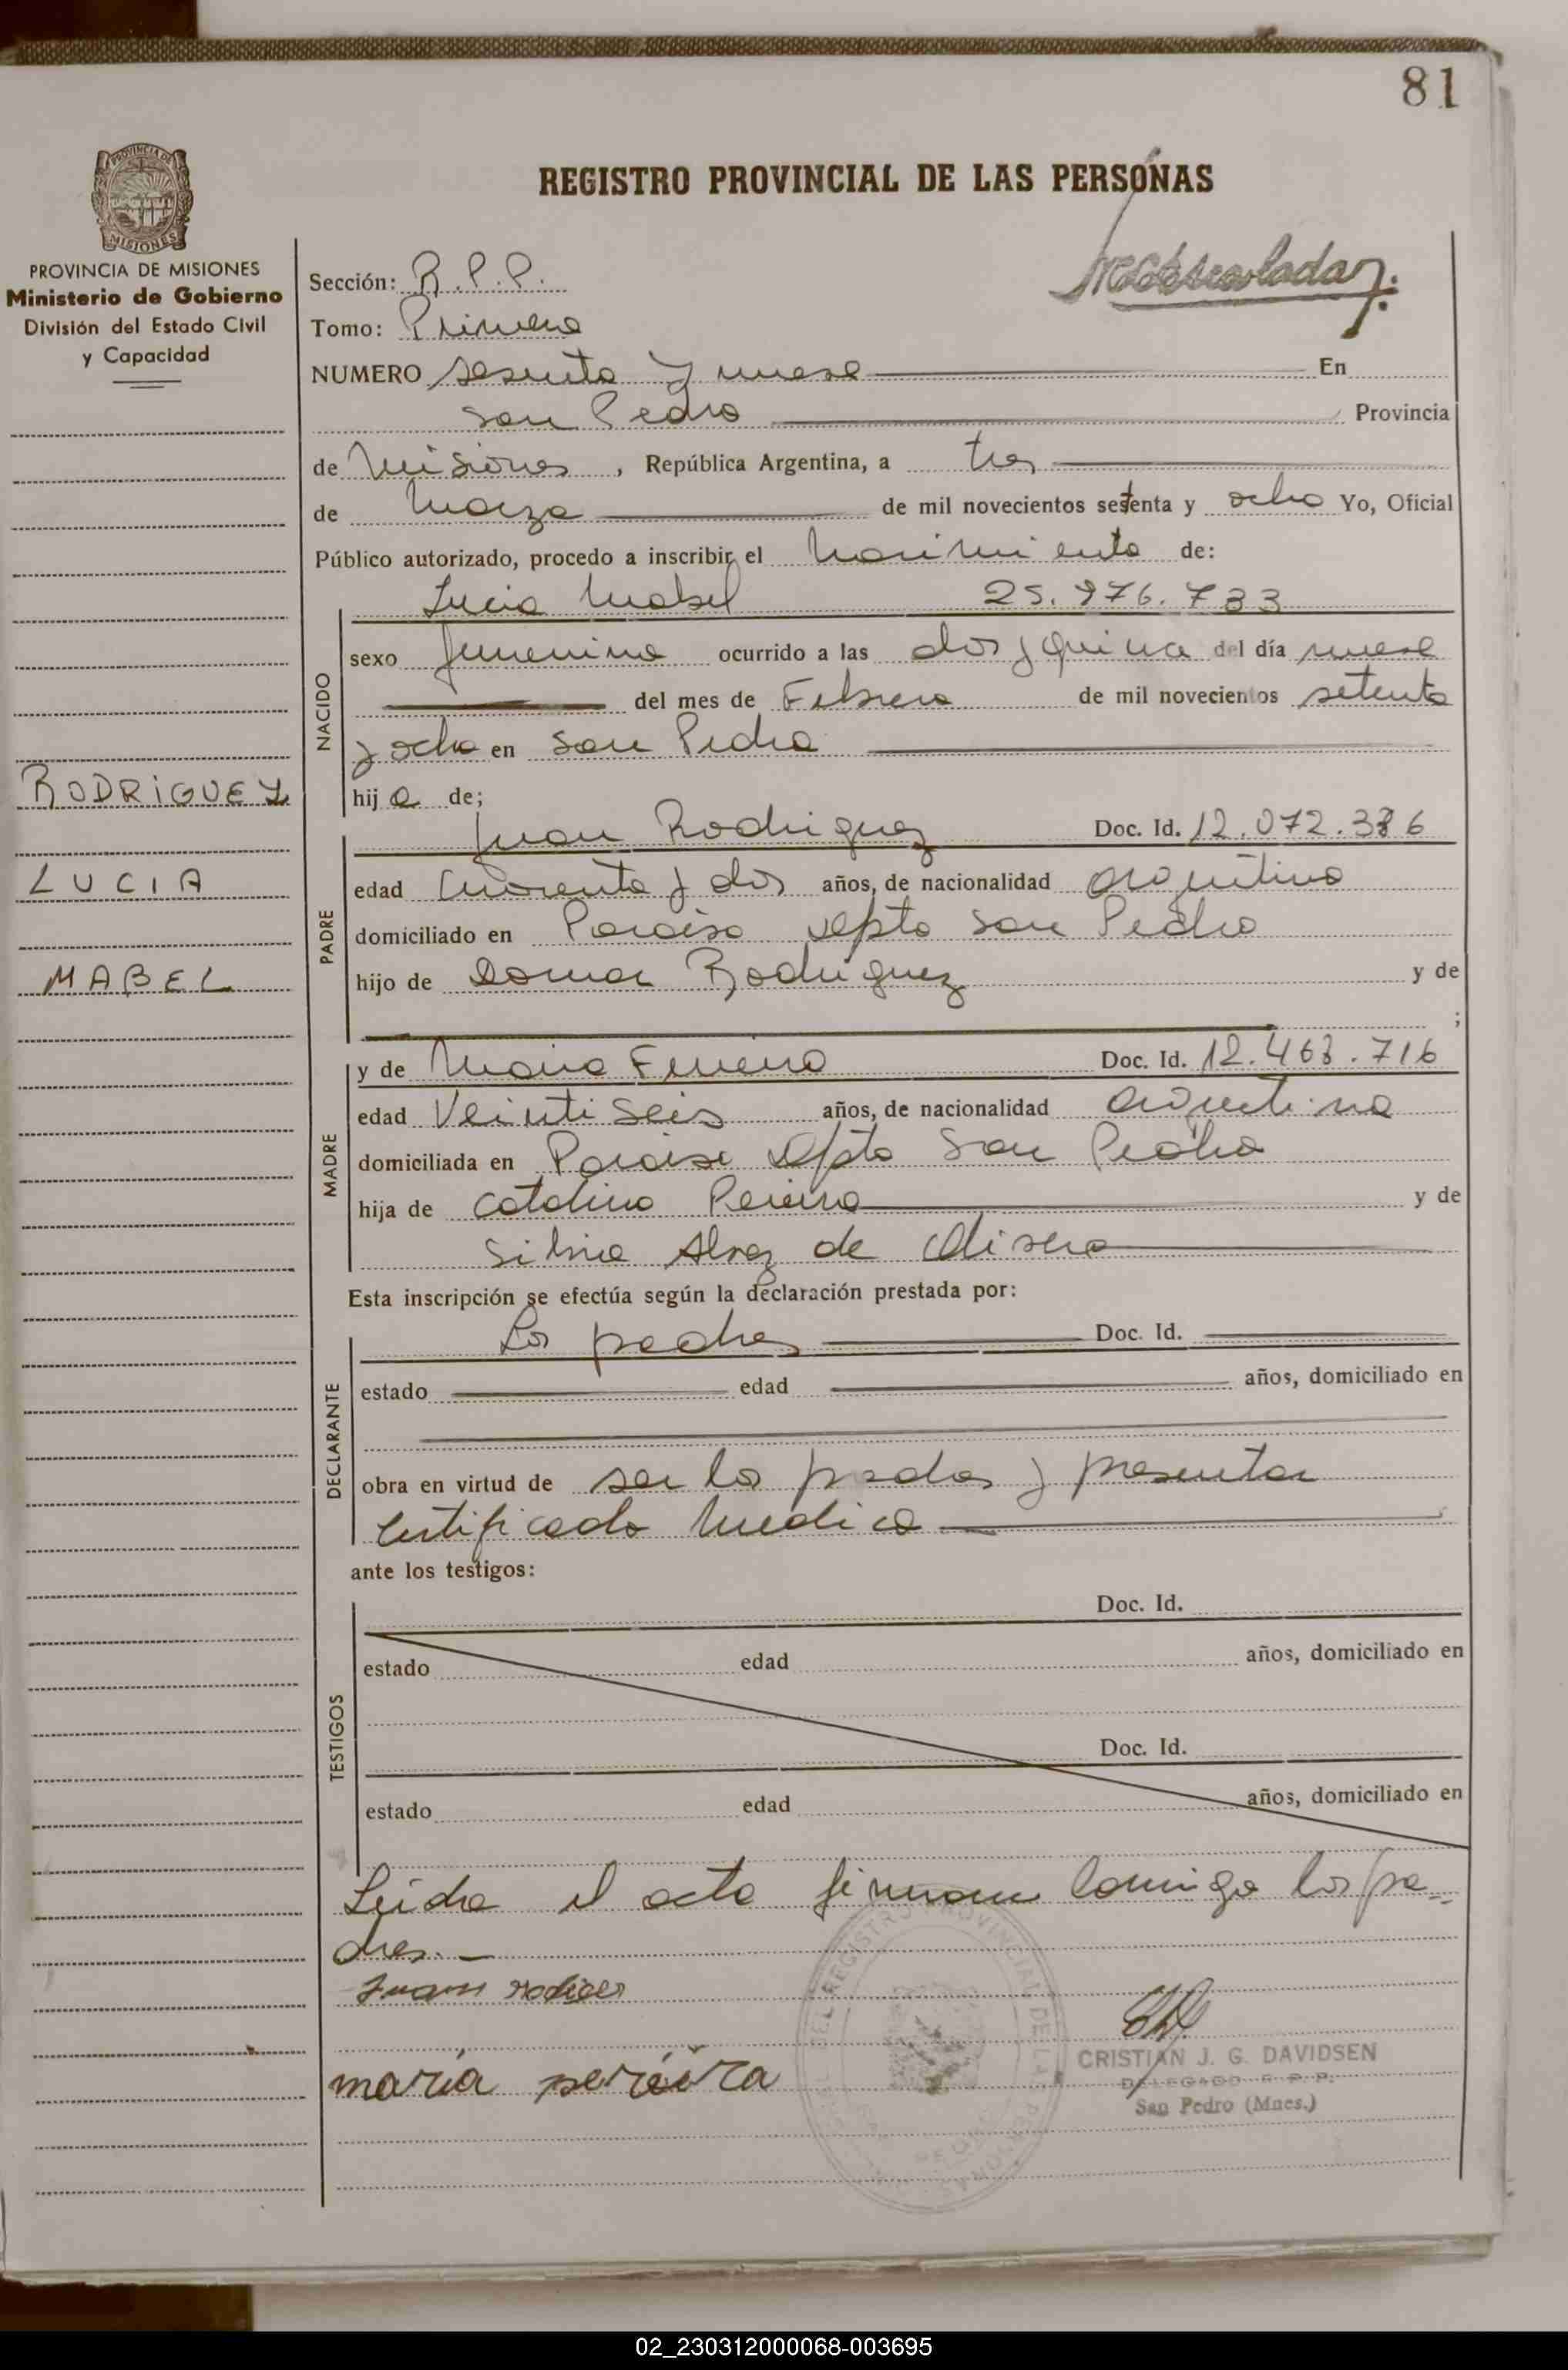 81
REGISTRO PROVINCIAL DE LAS PERSONAS
PROVINCIA DE MISIONES
Ministerio de Gobierno
División del Estado Civil
y Capacidad
Sección: R.P.P.
Tomo: Primero
NUMERO sesenta y nueve En
San Pedro Provincia
de Misiones, República Argentina, a tres
de Marzo de mil novecientos setenta y ocho Yo, Oficial
Público autorizado, procedo a inscribir el Nacimiento de:
Lucia Mabel 25.976.733
NACIDO
sexo femenino ocurrido a las dos y quince del día nueve
del mes de Febrero de mil novecientos setenta
y ocho en San Pedro
hija de;
RODRIGUEZ
LUCIA
MABEL
PADRE
Juan Rodriguez Doc. Id. 12.072.386
edad Cuarenta y dos años, de nacionalidad argentino
domiciliado en Paraiso Depto San Pedro
hijo de Rodriguez y de
;
MADRE
y de Maria Doc. Id. 12.463.716
edad Veintiseis años, de nacionalidad argentina
domiciliada en Paraiso Depto San Pedro
hija de Catalino Pereira y de
de
Esta inscripción se efectúa según la declaración prestada por:
DECLARANTE
Los padres Doc. Id.
estado edad años, domiciliado en
obra en virtud de ser los padres y presentar
certificado Medico
ante los testigos:
TESTIGOS
Doc. Id.
estado edad años, domiciliado en
Doc. Id.
estado edad años, domiciliado en
Leida el acta firman conmigo los pa-
dres.-
Juan
maria pereira
CRISTIAN J. G. DAVIDSEN
DELEGADO R. P. P.
San Pedro (Mnes.)
02_230312000068-003695